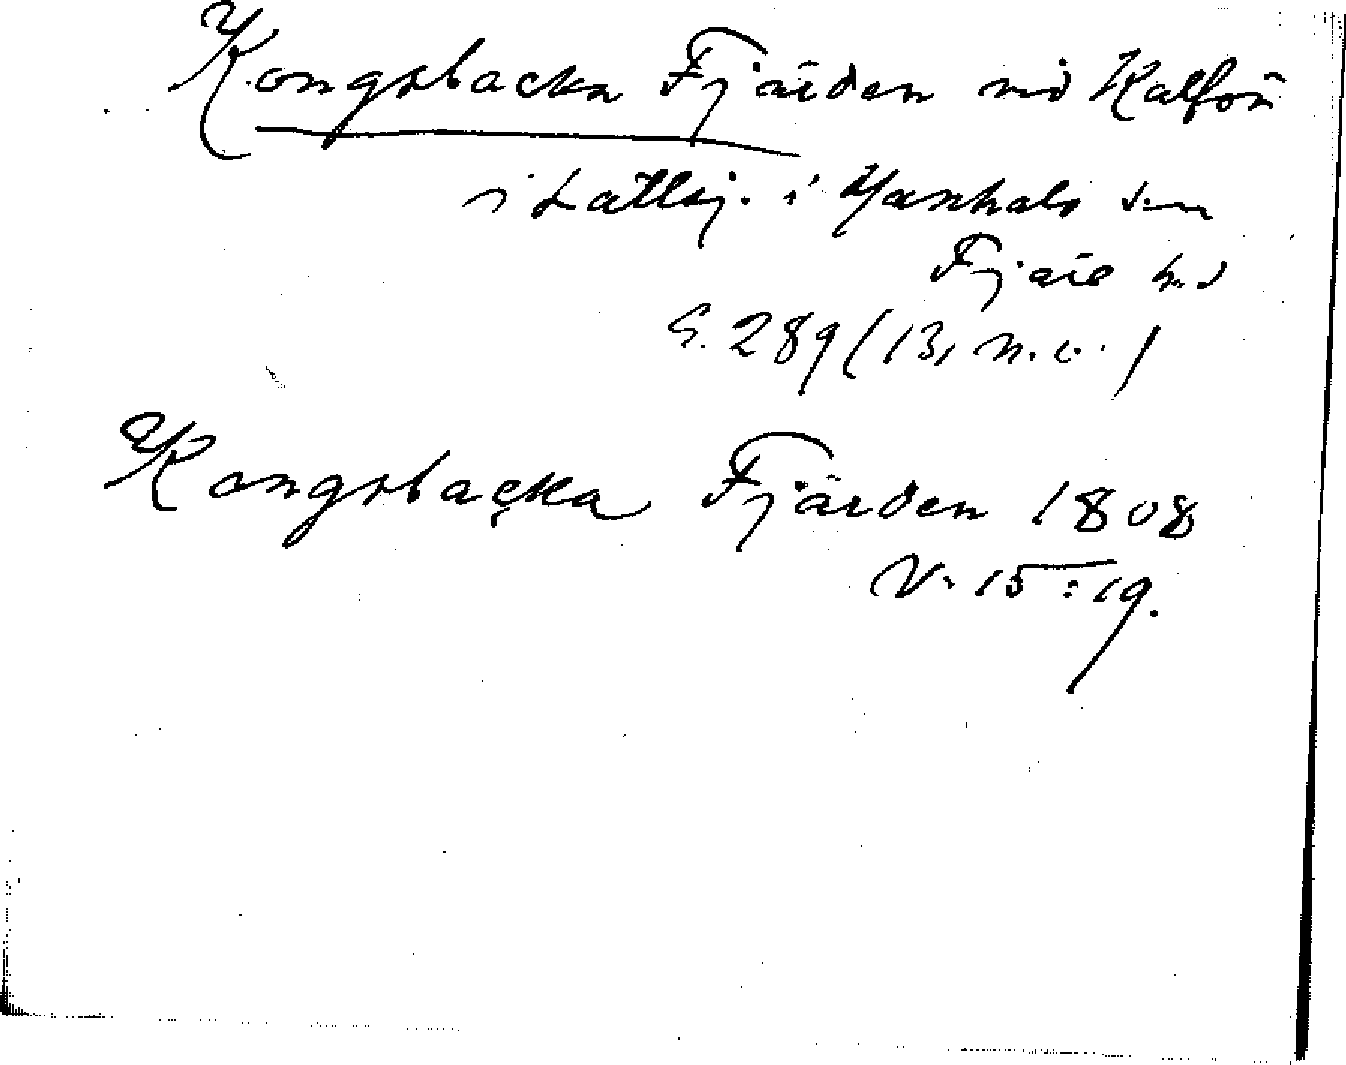 Kongsbacka Fjärden vid Kalfön
i Lättlig. i Hanhals sn
Fjäre hd
S. 289 (13, n.v.)
Kongsbacka Fjärden 1808
V. 15:19.